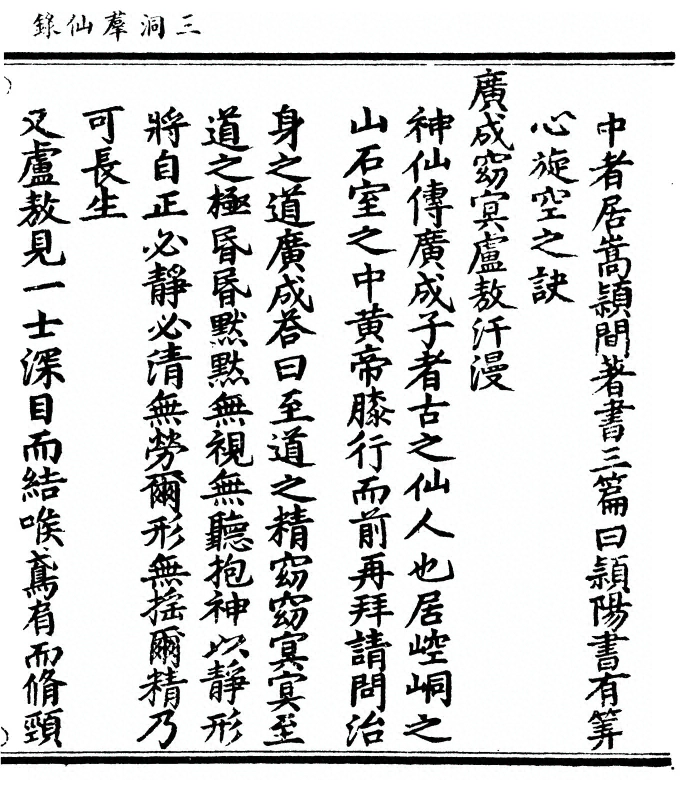 三洞羣仙錄
中者居嵩潁間著書三篇曰潁陽書有筭
心旋空之訣
廣成窈冥盧敖汗漫
神仙傳廣成子者古之仙人也居崆峒之
山石室之中黄帝膝行而前再拜請問治
身之道廣成荅曰至道之精窈窈冥冥至
道之極昬昬默默無視無聽抱神以靜形
將自正必靜必清無勞爾形無揺爾精乃
可長生
又盧敖見一士深目而結喉鳶肩而脩頸